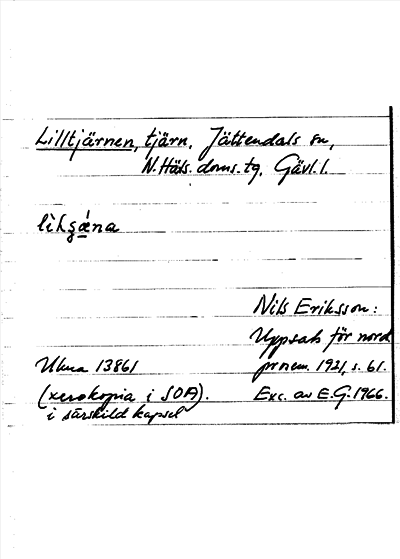 Lilltjärnen, tjärn, Jättendals sn,
N. Häls. doms. tg, Gävl. l.
Nils Eriksson:
Uppsats för nord
prosem. 1921, s. 61.
Ulma 13861
(xerokopia i SOA).
Exc. av E.G. 1966.
i särskild kapsel